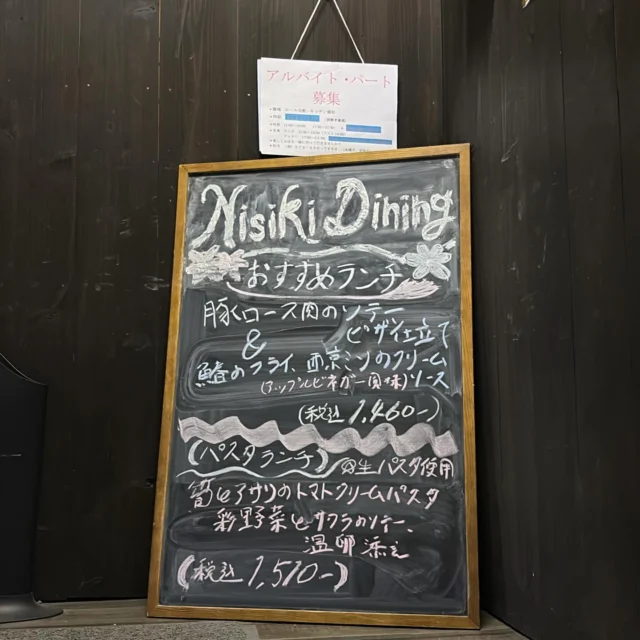 アルバイト・パート
募集
Nisiki Dining
おすすめランチ
豚ロース肉のソテー
ピザ仕立て
&
鰆のフライ、西京ミソのクリーム
(アップルビネガー風味)ソース
(税込 1,460-)
(パスタランチ) 生パスタ使用
筍とアサリのトマトクリームパスタ
彩野菜とサワラのソテー、
温卵添え
(税込 1,510-)